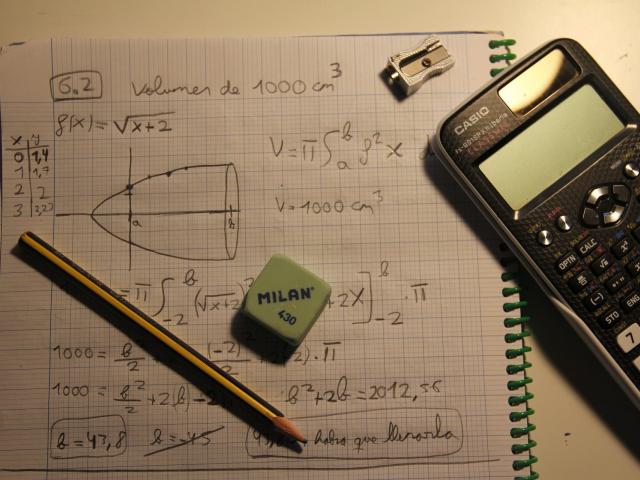 6.2 Volumen de 1000 cm³
f(x) = √x+2
x y
0 1,4
1 1,7
2 2
3
V = π ∫ₐᵇ f² x d
V = 1000 cm³
a b
= π ∫₋₂ᵇ (√x+2)² +2x]₋₂ᵇ · π
MILAN
430
1000 = b²/2 (-2)² · π
1000 = b²/2 + 2b - 2 b² + 2b = 2012,56
b = 43,8 b = -45 habra que llenarla
CASIO
CLASSWIZ
OPTN CALC
(-)
STO ENG
7